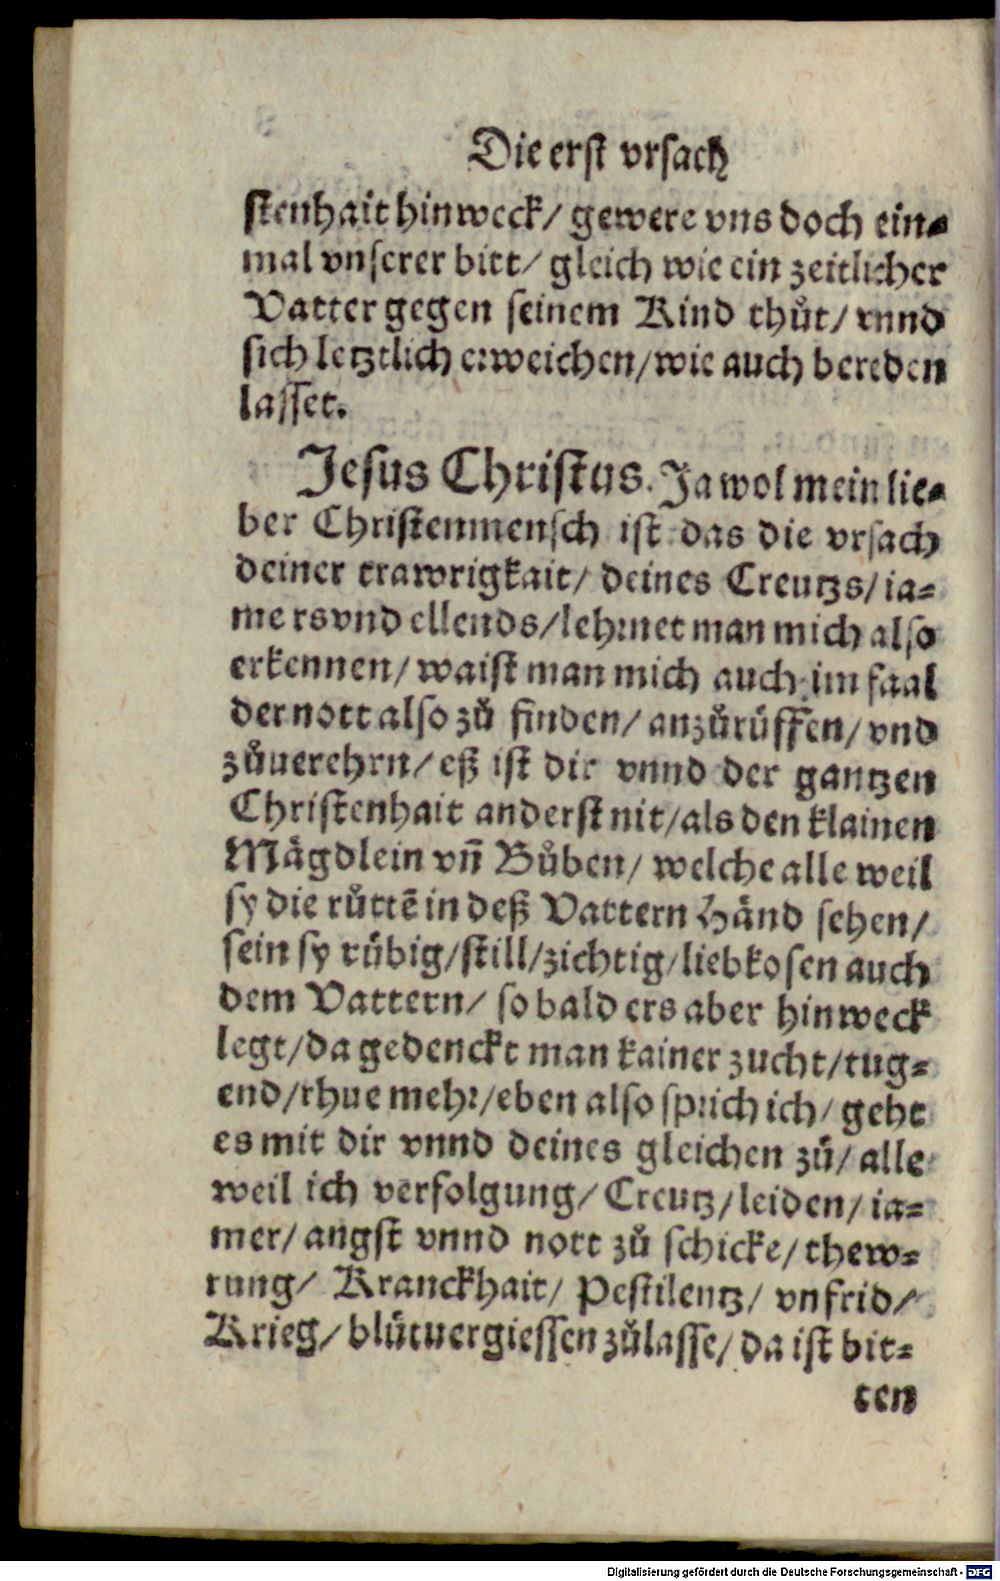 Die erst vrsach
stenhait hinweck/ gewere vns doch ein⸗
mal vnserer bitt/ gleich wie ein zeitlicher
Vatter gegen seinem Kind thůt/ vnnd
sich letztlich erweichen/ wie auch bereden
lasset.
Jesus Christus. Ja wol mein lie⸗
ber Christenmensch ist das die vrsach
deiner trawrigkait/ deines Creutzs/ ia⸗
mers vnd ellends/ lehrnet man mich also
erkennen/ waist man mich auch im faal
der nott also zů finden/ anzůrůffen/ vnd
zůuerehrn/ eß ist dir vnnd der gantzen
Christenhait anderst nit/ als den klainen
Mägdlein vñ Bůben/ welche alle weil
sy die růttē in deß Vattern Händ sehen/
sein sy růbig/ still/ zichtig/ liebkosen auch
dem Vattern/ so bald ers aber hinweck
legt/ da gedenckt man kainer zucht/ tug⸗
end/ rhue mehr/ eben also sprich ich/ geht
es mit dir vnnd deines gleichen zů/ alle
weil ich verfolgung/ Creutz/ leiden/ ia⸗
mer/ angst vnnd nott zů schicke/ thew⸗
rung/ Kranckhait/ Pestilentz/ vnfrid/
Krieg/ blůtuergiessen zůlasse/ da ist bit⸗
ten
Digitalisierung gefördert durch die Deutsche Forschungsgemeinschaft - DFG